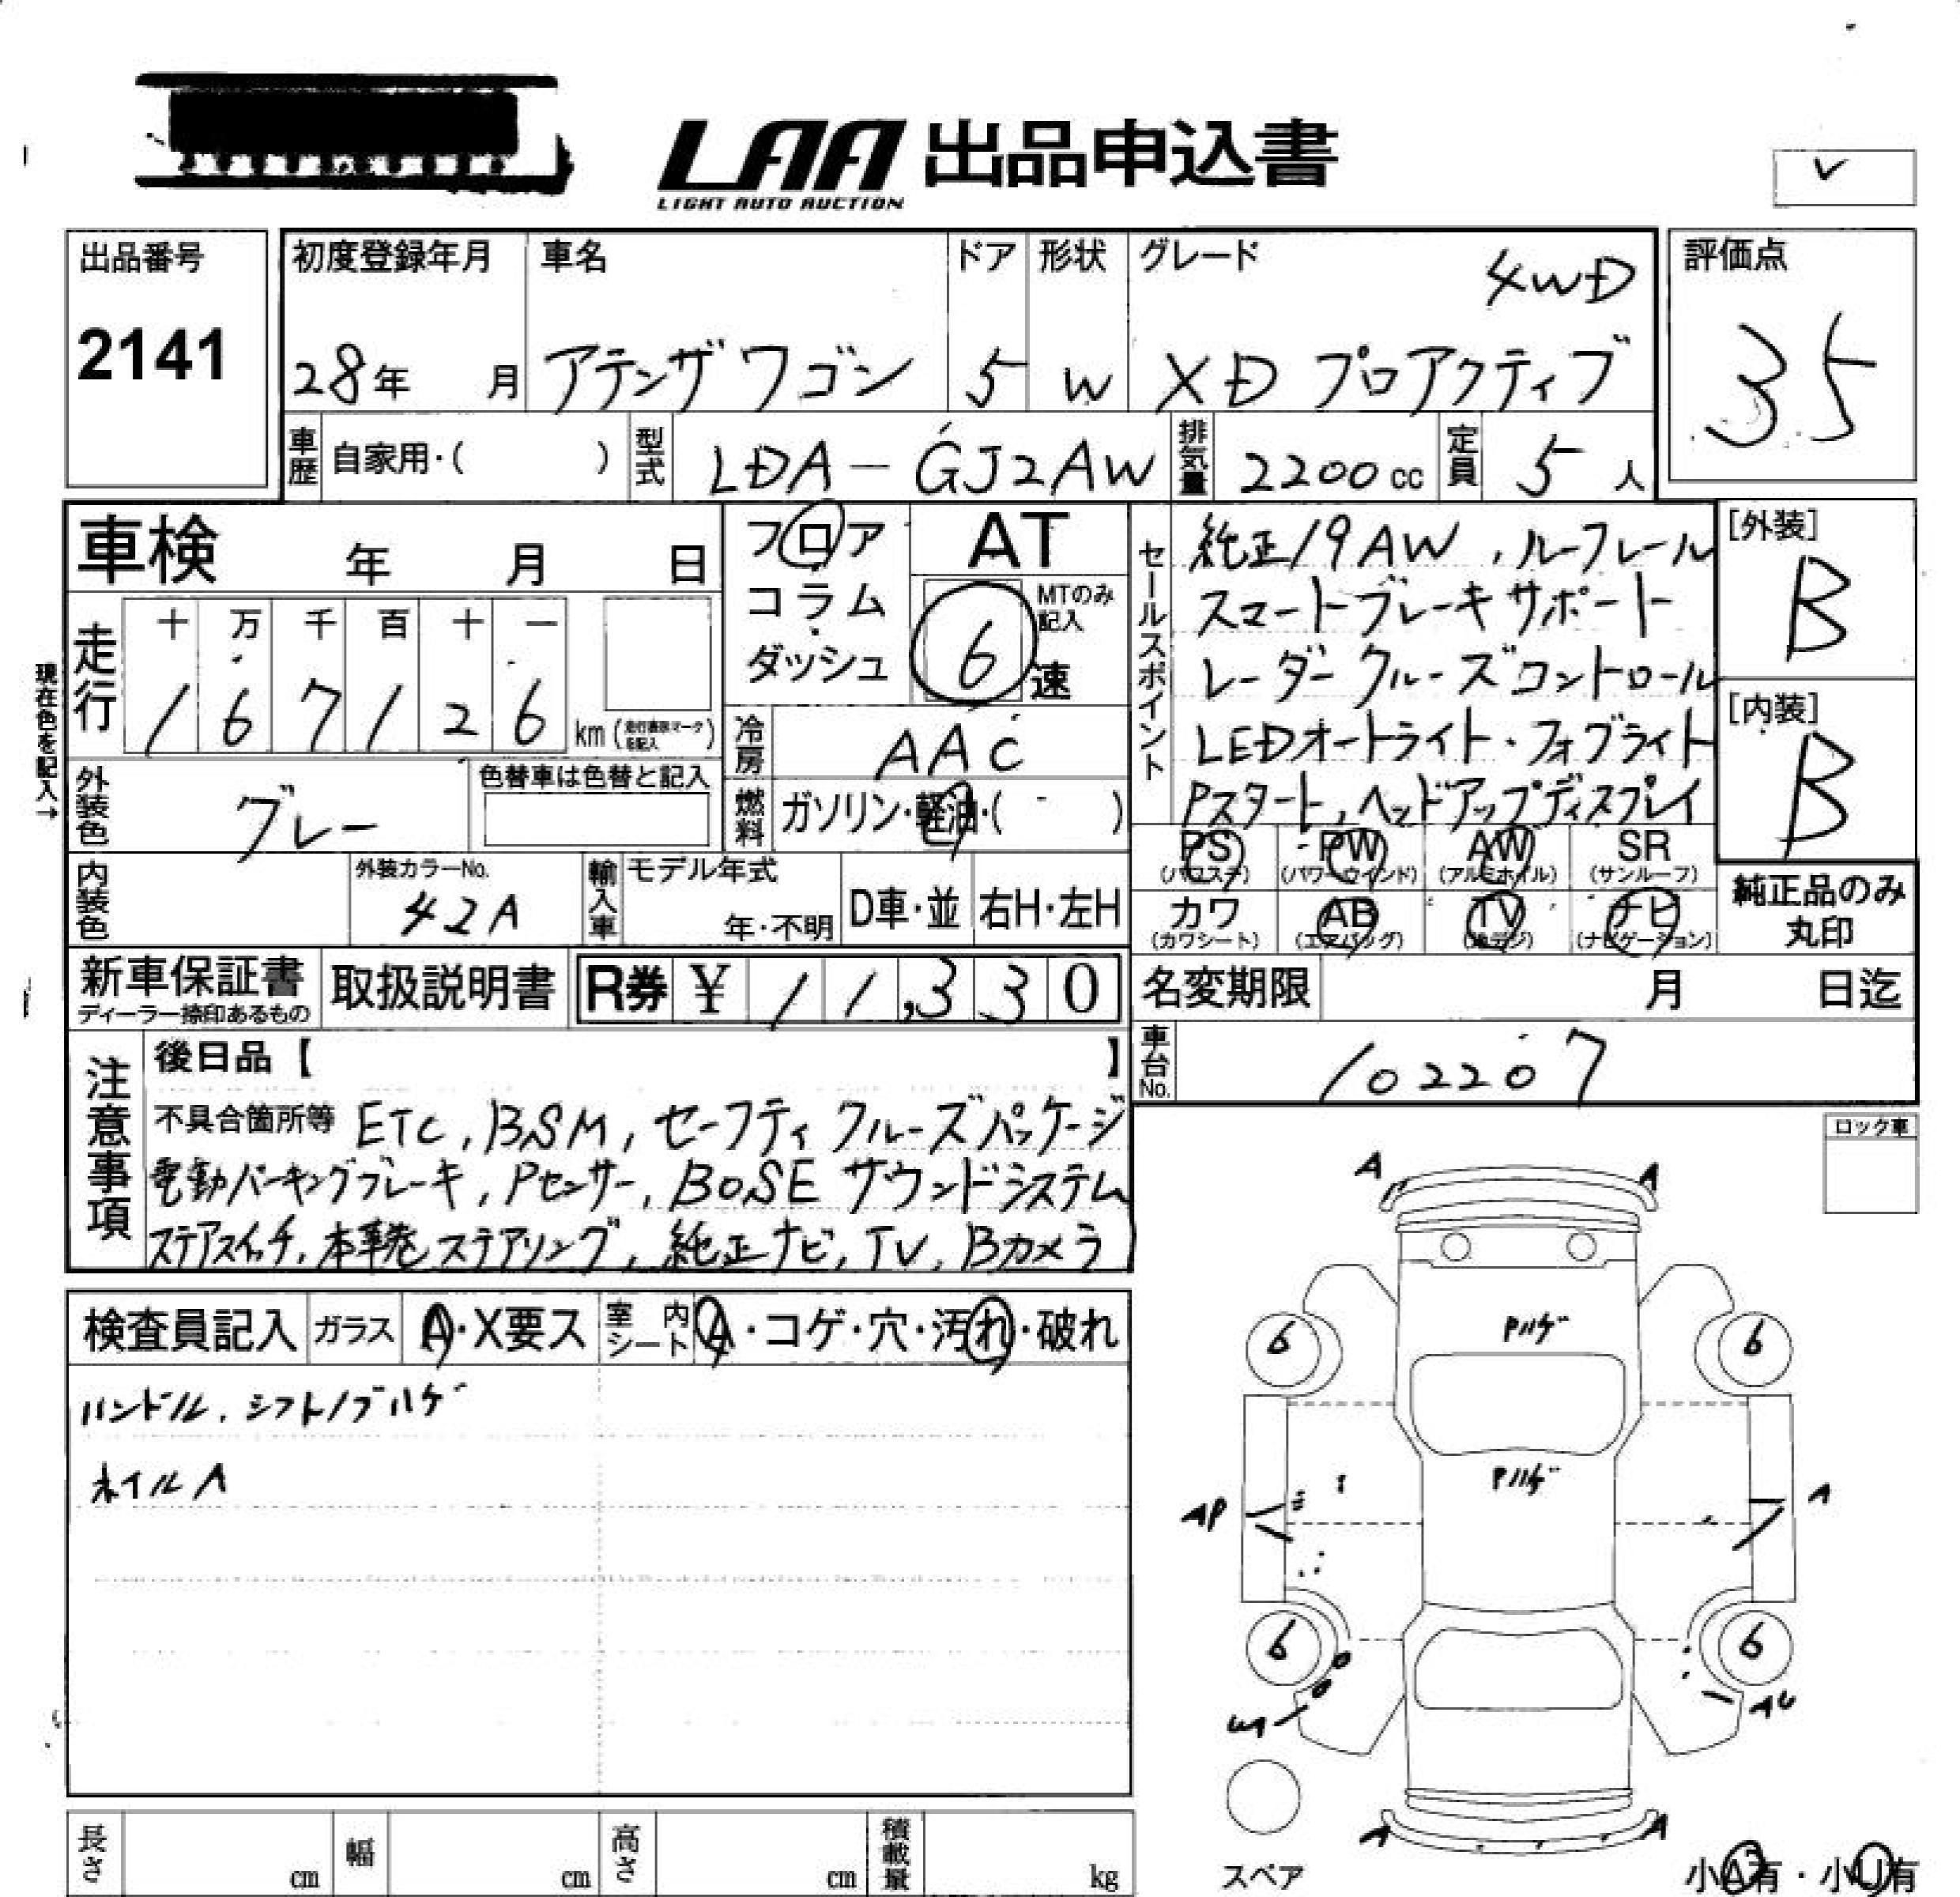 LAA 出品申込書
LIGHT AUTO AUCTION
出品番号
2141
初度登録年月
28年 月
車名
アテンザ ワゴン
ドア
5
形状
W
グレード
4WD
XD プロアクティブ
評価点
3.5
車歴 自家用・( )
型式 LDA-GJ2AW
排気量 2200 cc
定員 5 人
車検 年 月 日
フロア
コラム
ダッシュ
AT
MTのみ記入
6 速
走行
十 万 千 百 十 一
1 6 7 1 2 6 km (走行メーター交換マークを記入)
現在色を記入→
冷房 AAC
燃料 ガソリン・軽油・( )
外装色 グレー
色替車は色替と記入
内装色
外装カラーNo.
42A
輸入車
モデル年式
年・不明
D車・並
右H・左H
セールスポイント
純正19AW、ルーフレール
スマートブレーキサポート
レーダークルーズコントロール
LEDオートライト・フォグライト
Pスタート、ヘッドアップディスプレイ
[外装]
B
[内装]
B
PS (パワステ) PW (パワーウインド) AW (アルミホイル) SR (サンルーフ)
カワ (カワシート) AB (エアバッグ) TV (地デジ) ナビ (ナビゲーション)
純正品のみ
丸印
新車保証書
ディーラー捺印あるもの
取扱説明書
R券 ¥ 11,330
名変期限 月 日迄
車台No. 102207
注意事項
後日品【 】
不具合箇所等 ETC, BSM, セーフティ クルーズパッケージ
電動パーキングブレーキ, Pセンサー, BOSE サウンドシステム
ステアスイッチ, 本革巻ステアリング, 純正ナビ, TV, Bカメラ
ロック車
検査員記入
ガラス A・X要ス
室内シート A・コゲ・穴・汚れ・破れ
ハンドル, シフトノブハゲ
ホイルA
A A
Pハゲ
6 6
Pハゲ
AP A
6 6
AU
A A
スペア
小A有・小U有
長さ cm
幅 cm
高さ cm
積載量 kg